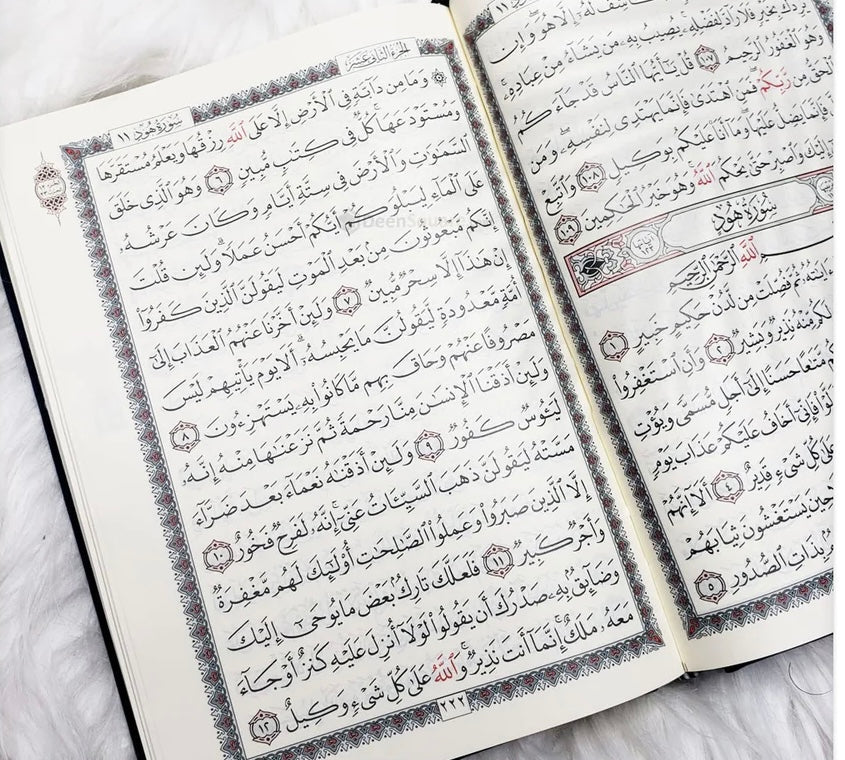 لَهُۥٓ إِلَّا هُوَ وَإِن
يُرِدْكَ بِخَيْرٍ فَلَا رَآدَّ لِفَضْلِهِۦ يُصِيبُ بِهِۦ مَن يَشَآءُ مِنْ عِبَادِهِۦ
وَهُوَ ٱلْغَفُورُ ٱلرَّحِيمُ ١٠٧ قُلْ يَٰٓأَيُّهَا ٱلنَّاسُ قَدْ جَآءَكُمُ
ٱلْحَقُّ مِن رَّبِّكُمْ فَمَنِ ٱهْتَدَىٰ فَإِنَّمَا يَهْتَدِى لِنَفْسِهِۦ وَمَن
فَإِنَّمَا يَضِلُّ عَلَيْهَا وَمَآ أَنَا۠ عَلَيْكُم بِوَكِيلٍ ١٠٨ وَٱتَّبِعْ
إِلَيْكَ وَٱصْبِرْ حَتَّىٰ يَحْكُمَ ٱللَّهُ وَهُوَ خَيْرُ ٱلْحَٰكِمِينَ ١٠٩
سُورَةُ هُودٍ
ٱللَّهِ ٱلرَّحْمَٰنِ ٱلرَّحِيمِ
ءَايَٰتُهُۥ ثُمَّ فُصِّلَتْ مِن لَّدُنْ حَكِيمٍ خَبِيرٍ ١
لَكُم مِّنْهُ نَذِيرٌ وَبَشِيرٌ ٢ وَأَنِ ٱسْتَغْفِرُوا۟
مَّتَٰعًا حَسَنًا إِلَىٰٓ أَجَلٍ مُّسَمًّى وَيُؤْتِ
فَإِنِّىٓ أَخَافُ عَلَيْكُمْ عَذَابَ يَوْمٍ
عَلَىٰ كُلِّ شَىْءٍ قَدِيرٌ ٤ أَلَآ إِنَّهُمْ
حِينَ يَسْتَغْشُونَ ثِيَابَهُمْ
بِذَاتِ ٱلصُّدُورِ ٥
ٱلْجُزْءُ ٱلثَّانِي عَشَرَ
سُورَةُ هُودٍ ١١
۞ وَمَا مِن دَآبَّةٍ فِى ٱلْأَرْضِ إِلَّا عَلَى ٱللَّهِ رِزْقُهَا وَيَعْلَمُ مُسْتَقَرَّهَا
وَمُسْتَوْدَعَهَا كُلٌّ فِى كِتَٰبٍ مُّبِينٍ ٦ وَهُوَ ٱلَّذِى خَلَقَ
ٱلسَّمَٰوَٰتِ وَٱلْأَرْضَ فِى سِتَّةِ أَيَّامٍ وَكَانَ عَرْشُهُۥ
عَلَى ٱلْمَآءِ لِيَبْلُوَكُمْ أَيُّكُمْ أَحْسَنُ عَمَلًا وَلَئِن قُلْتَ
إِنَّكُم مَّبْعُوثُونَ مِنۢ بَعْدِ ٱلْمَوْتِ لَيَقُولَنَّ ٱلَّذِينَ كَفَرُوٓا۟
إِنْ هَٰذَآ إِلَّا سِحْرٌ مُّبِينٌ ٧ وَلَئِنْ أَخَّرْنَا عَنْهُمُ ٱلْعَذَابَ إِلَىٰٓ
أُمَّةٍ مَّعْدُودَةٍ لَّيَقُولُنَّ مَا يَحْبِسُهُۥٓ أَلَا يَوْمَ يَأْتِيهِمْ لَيْسَ
مَصْرُوفًا عَنْهُمْ وَحَاقَ بِهِم مَّا كَانُوا۟ بِهِۦ يَسْتَهْزِءُونَ ٨
وَلَئِنْ أَذَقْنَا ٱلْإِنسَٰنَ مِنَّا رَحْمَةً ثُمَّ نَزَعْنَٰهَا مِنْهُ إِنَّهُۥ
لَيَـُٔوسٌ كَفُورٌ ٩ وَلَئِنْ أَذَقْنَٰهُ نَعْمَآءَ بَعْدَ ضَرَّآءَ
مَسَّتْهُ لَيَقُولَنَّ ذَهَبَ ٱلسَّيِّـَٔاتُ عَنِّىٓ إِنَّهُۥ لَفَرِحٌ فَخُورٌ ١٠
إِلَّا ٱلَّذِينَ صَبَرُوا۟ وَعَمِلُوا۟ ٱلصَّٰلِحَٰتِ أُو۟لَٰٓئِكَ لَهُم مَّغْفِرَةٌ
وَأَجْرٌ كَبِيرٌ ١١ فَلَعَلَّكَ تَارِكٌۢ بَعْضَ مَا يُوحَىٰٓ إِلَيْكَ
وَضَآئِقٌۢ بِهِۦ صَدْرُكَ أَن يَقُولُوا۟ لَوْلَآ أُنزِلَ عَلَيْهِ كَنزٌ أَوْ جَآءَ
مَعَهُۥ مَلَكٌ إِنَّمَآ أَنتَ نَذِيرٌ وَٱللَّهُ عَلَىٰ كُلِّ شَىْءٍ وَكِيلٌ ١٢
٢٢٢